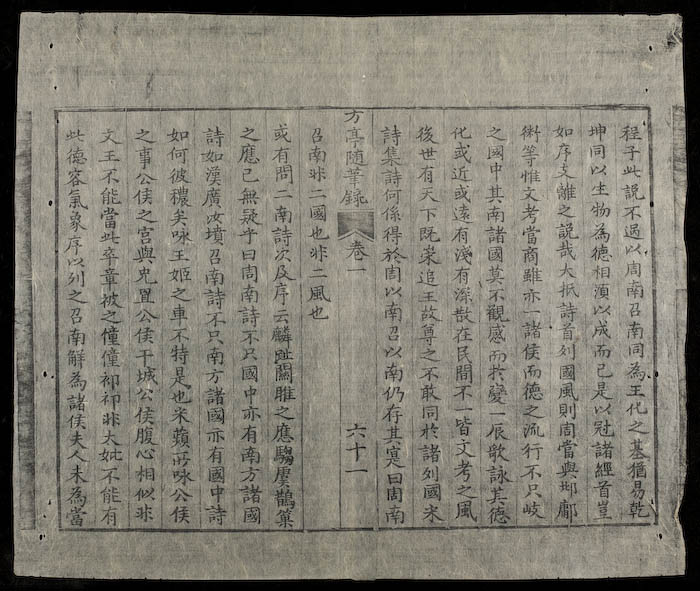 程子此說不過以周南召南同為王化之基猶易乾
坤同以生物為德相湏以成而已是以冠諸經首豈
如序支離之說哉大抵詩首列國風則周當與邶鄘
衛等惟文考當商雖亦一諸侯而德之流行不只岐
之國中其南諸國莫不觀感而於變一辰歌詠其德
化或近或遠有淺有深散在民間不一皆文考之風
後世有天下既崇追王故尊之不敢同於諸列國采
詩集詩何係得於周以南召以南仍存其寔曰周南
方亭隨筆錄 卷一 六十一
召南非二國也非二風也
或有問二南詩次及序云麟趾關雎之應騶虞鵲巢
之應已無疑乎曰周南詩不只國中亦有南方諸國
詩如漢廣汝墳召南詩不只南方諸國亦有國中詩
如何彼穠矣咏王姬之車不特是也采蘋所咏公侯
之事公侯之宮與兔罝公侯干城公侯腹心相似非
文王不能當此卒章被之僮僮祁祁非太姒不能有
此德容氣象序以列之召南解為諸侯夫人未為當